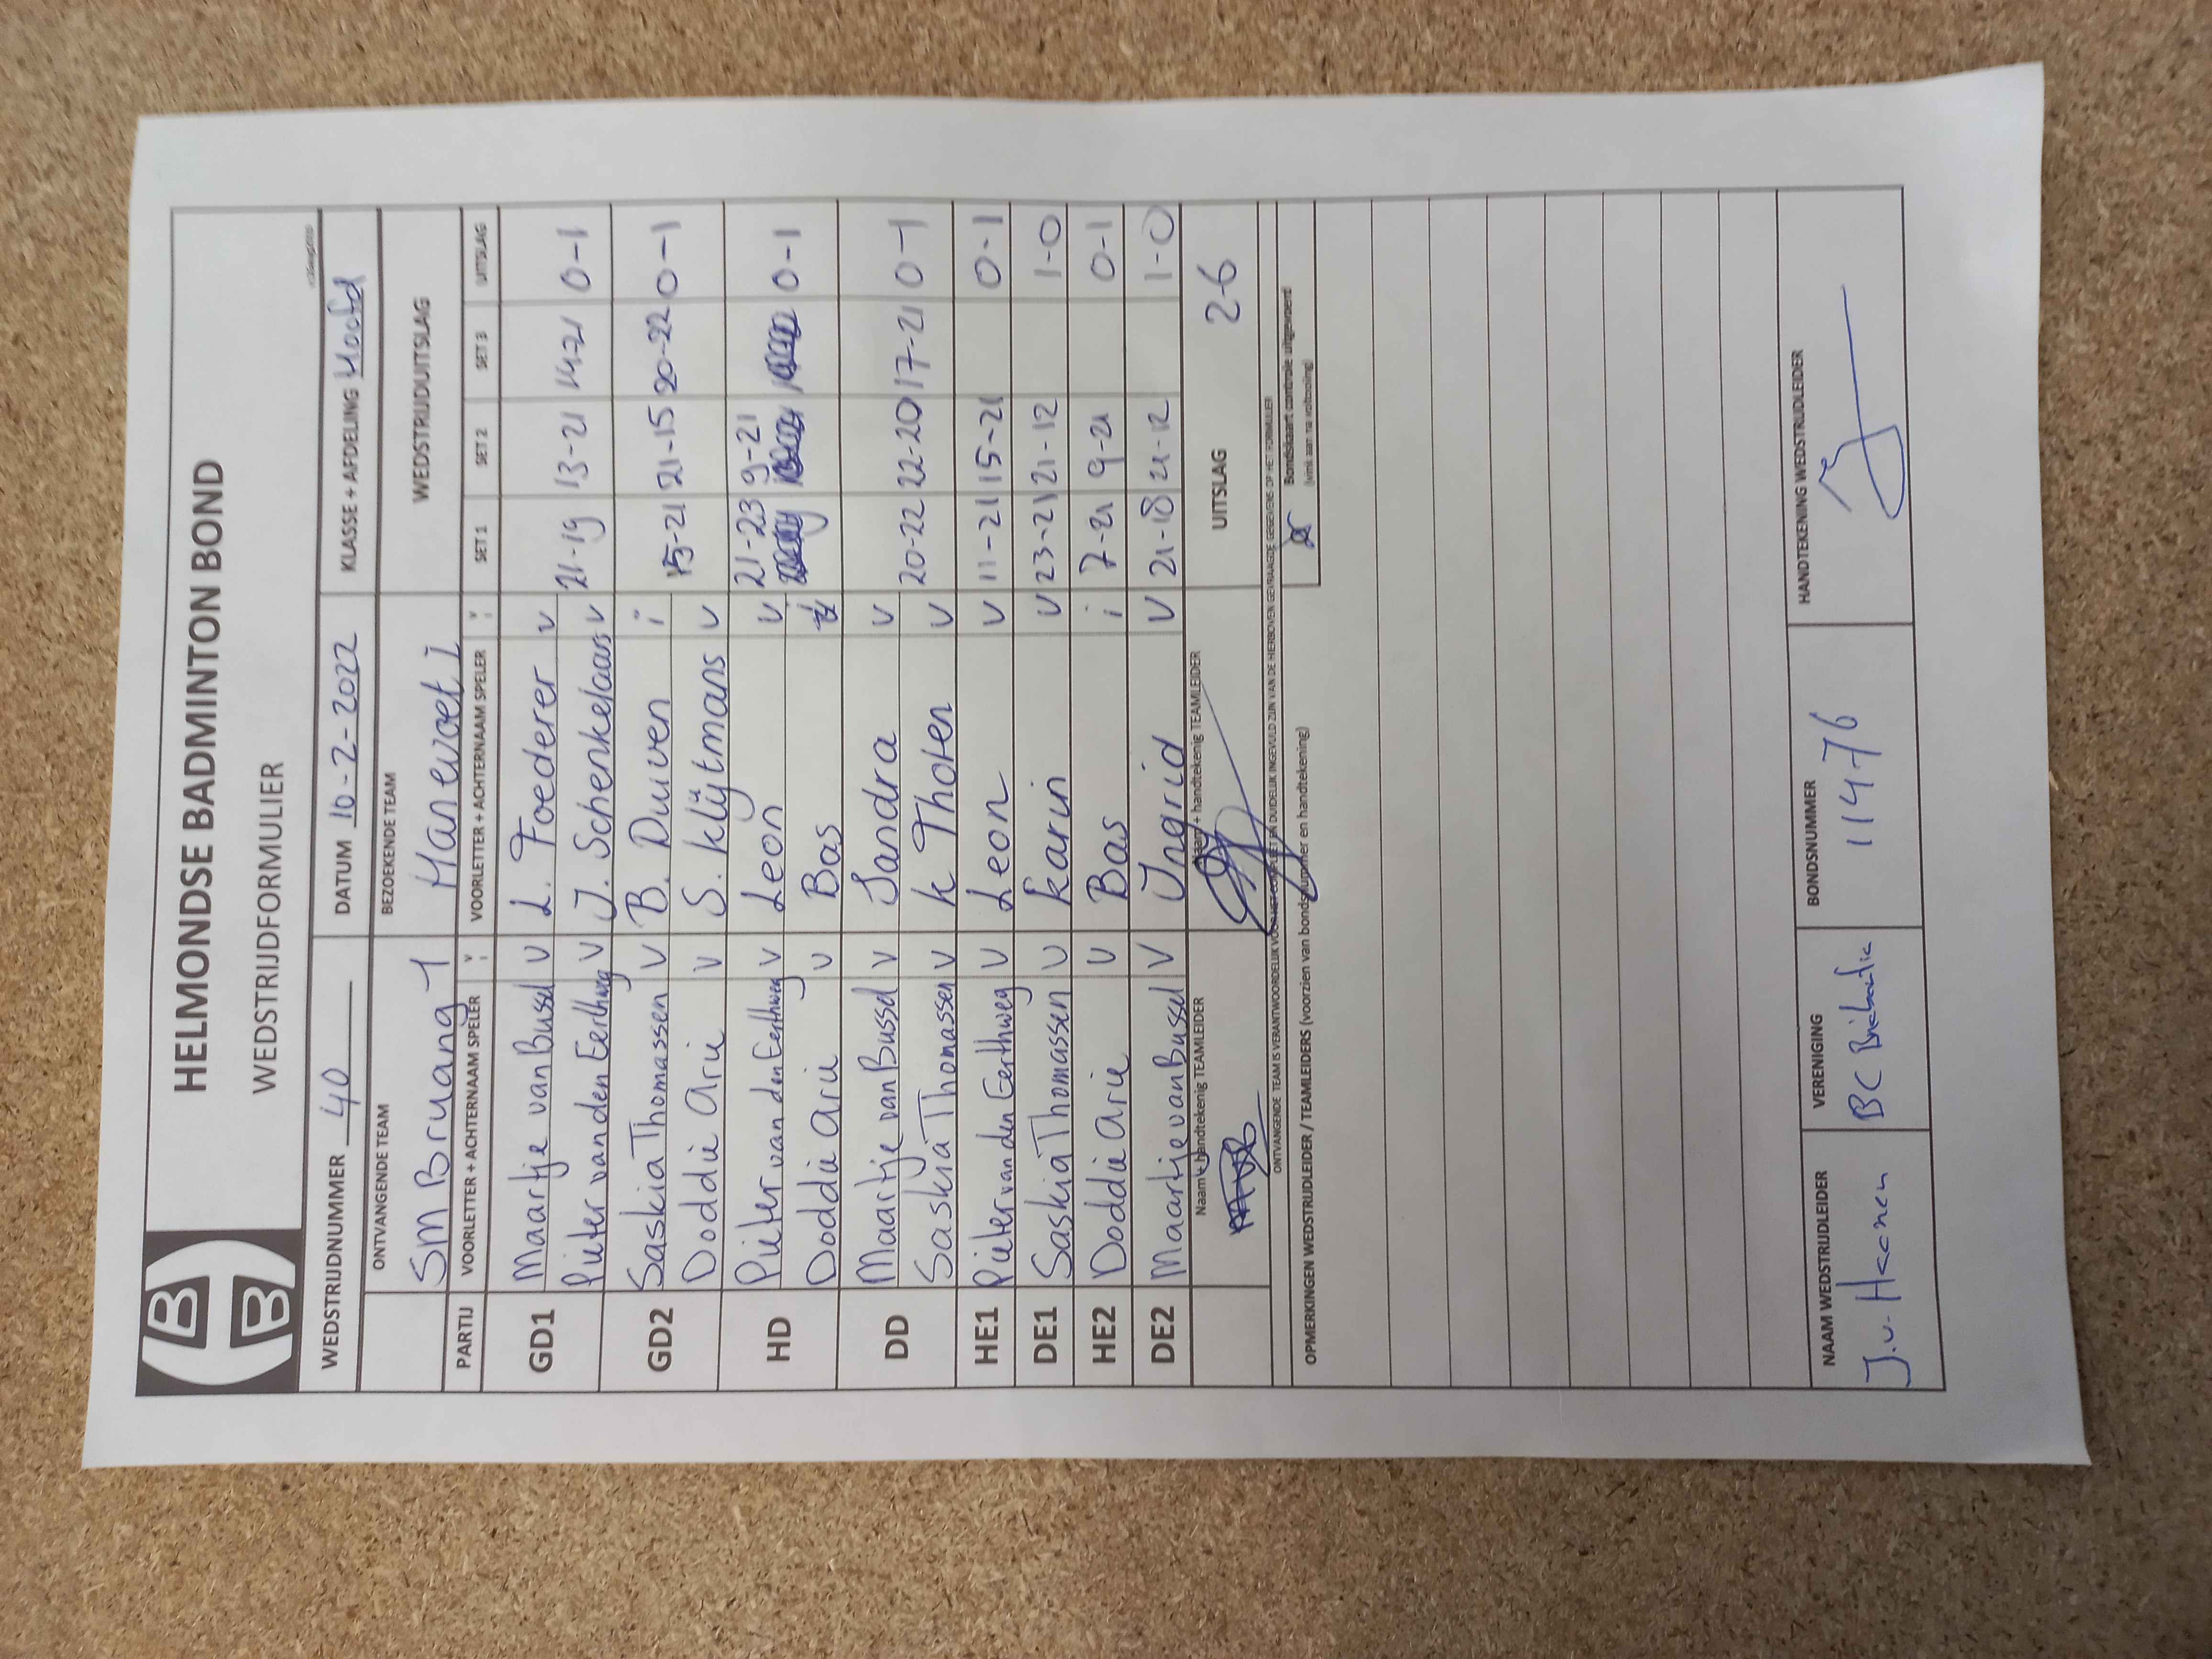 HELMONDSE BADMINTON BOND
WEDSTRIJDFORMULIER
WEDSTRIJDNUMMER 40 DATUM 16-2-2022 KLASSE + AFDELING Hoofd
ONTVANGENDE TEAM BEZOEKENDE TEAM WEDSTRIJDUITSLAG
SM Bruang 1 Hanevoet 1
PARTIJ VOORLETTER + ACHTERNAAM SPELER V i VOORLETTER + ACHTERNAAM SPELER V i SET 1 SET 2 SET 3 UITSLAG
GD1 Maartje van Bussel V L. Foederer V
Pieter van den Eerthweg V J. Schenkelaars V 21-19 13-21 14-21 0-1
GD2 Saskia Thomassen V B. Duiven i
Doddie Arie V S. Klijtmans V 15-21 21-15 20-22 0-1
HD Pieter van den Eerthweg V Leon V 21-23 9-21
Doddie Arie V Bas 0-1
DD Maartje van Bussel V Sandra V
Saskia Thomassen V K Tholen V 20-22 22-20 17-21 0-1
HE1 Pieter van den Eerthweg V Leon V 11-21 15-21 0-1
DE1 Saskia Thomassen V Karin V 23-21 21-12 1-0
HE2 Doddie Arie V Bas i 7-21 9-21 0-1
DE2 Maartje van Bussel V Ingrid V 21-18 21-12 1-0
Naam + handtekenig TEAMLEIDER Naam + handtekenig TEAMLEIDER UITSLAG 2-6
ONTVANGENDE TEAM IS VERANTWOORDELIJK VOOR HET CORRECT EN DUIDELIJK INGEVULD ZIJN VAN DE HIERBOVEN GEVRAAGDE GEGEVENS OP HET FORMULIER
Bondskaart controle uitgevoerd
(vink aan na voltooiing)
OPMERKINGEN WEDSTRIJDLEIDER / TEAMLEIDERS (voorzien van bondsnummer en handtekening)
NAAM WEDSTRIJDLEIDER VERENIGING BONDSNUMMER HANDTEKENING WEDSTRIJDLEIDER
J.v. BC 11476